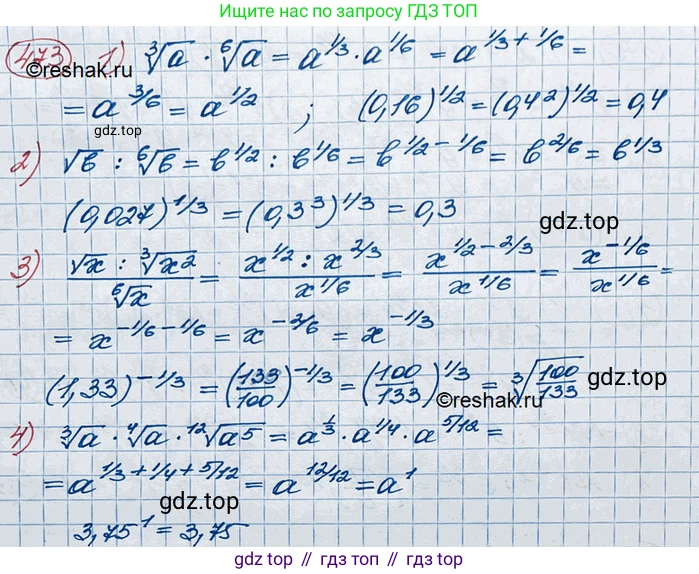 Вводите по запросу ГДЗ ТОП
473 1) ∛a · ⁶√a = a^1/3 · a^1/6 = a^1/3+1/6 =
©reshak.ru
= a^3/6 = a^1/2 ; (0,16)^1/2 = (0,4²)^1/2 = 0,4
gdz.top
2) √b : ⁶√b = b^1/2 : b^1/6 = b^1/2-1/6 = b^2/6 = b^1/3
(0,027)^1/3 = (0,3³)^1/3 = 0,3
gdz.top
3) (√x : ∛x²)/(⁶√x) = (x^1/2 : x^2/3)/(x^1/6) = (x^1/2-2/3)/(x^1/6) = (x^-1/6)/(x^1/6) =
= x^-1/6-1/6 = x^-2/6 = x^-1/3
(1,33)^-1/3 = (133/100)^-1/3 = (100/133)^1/3 = ∛(100/133)
gdz.top
©reshak.ru
4) ∛a · ⁴√a · ¹²√a⁵ = a^1/3 · a^1/4 · a^5/12 =
= a^1/3+1/4+5/12 = a^12/12 = a^1
gdz.top
3,75^1 = 3,75
gdz.top // гдз.топ // gdz.top